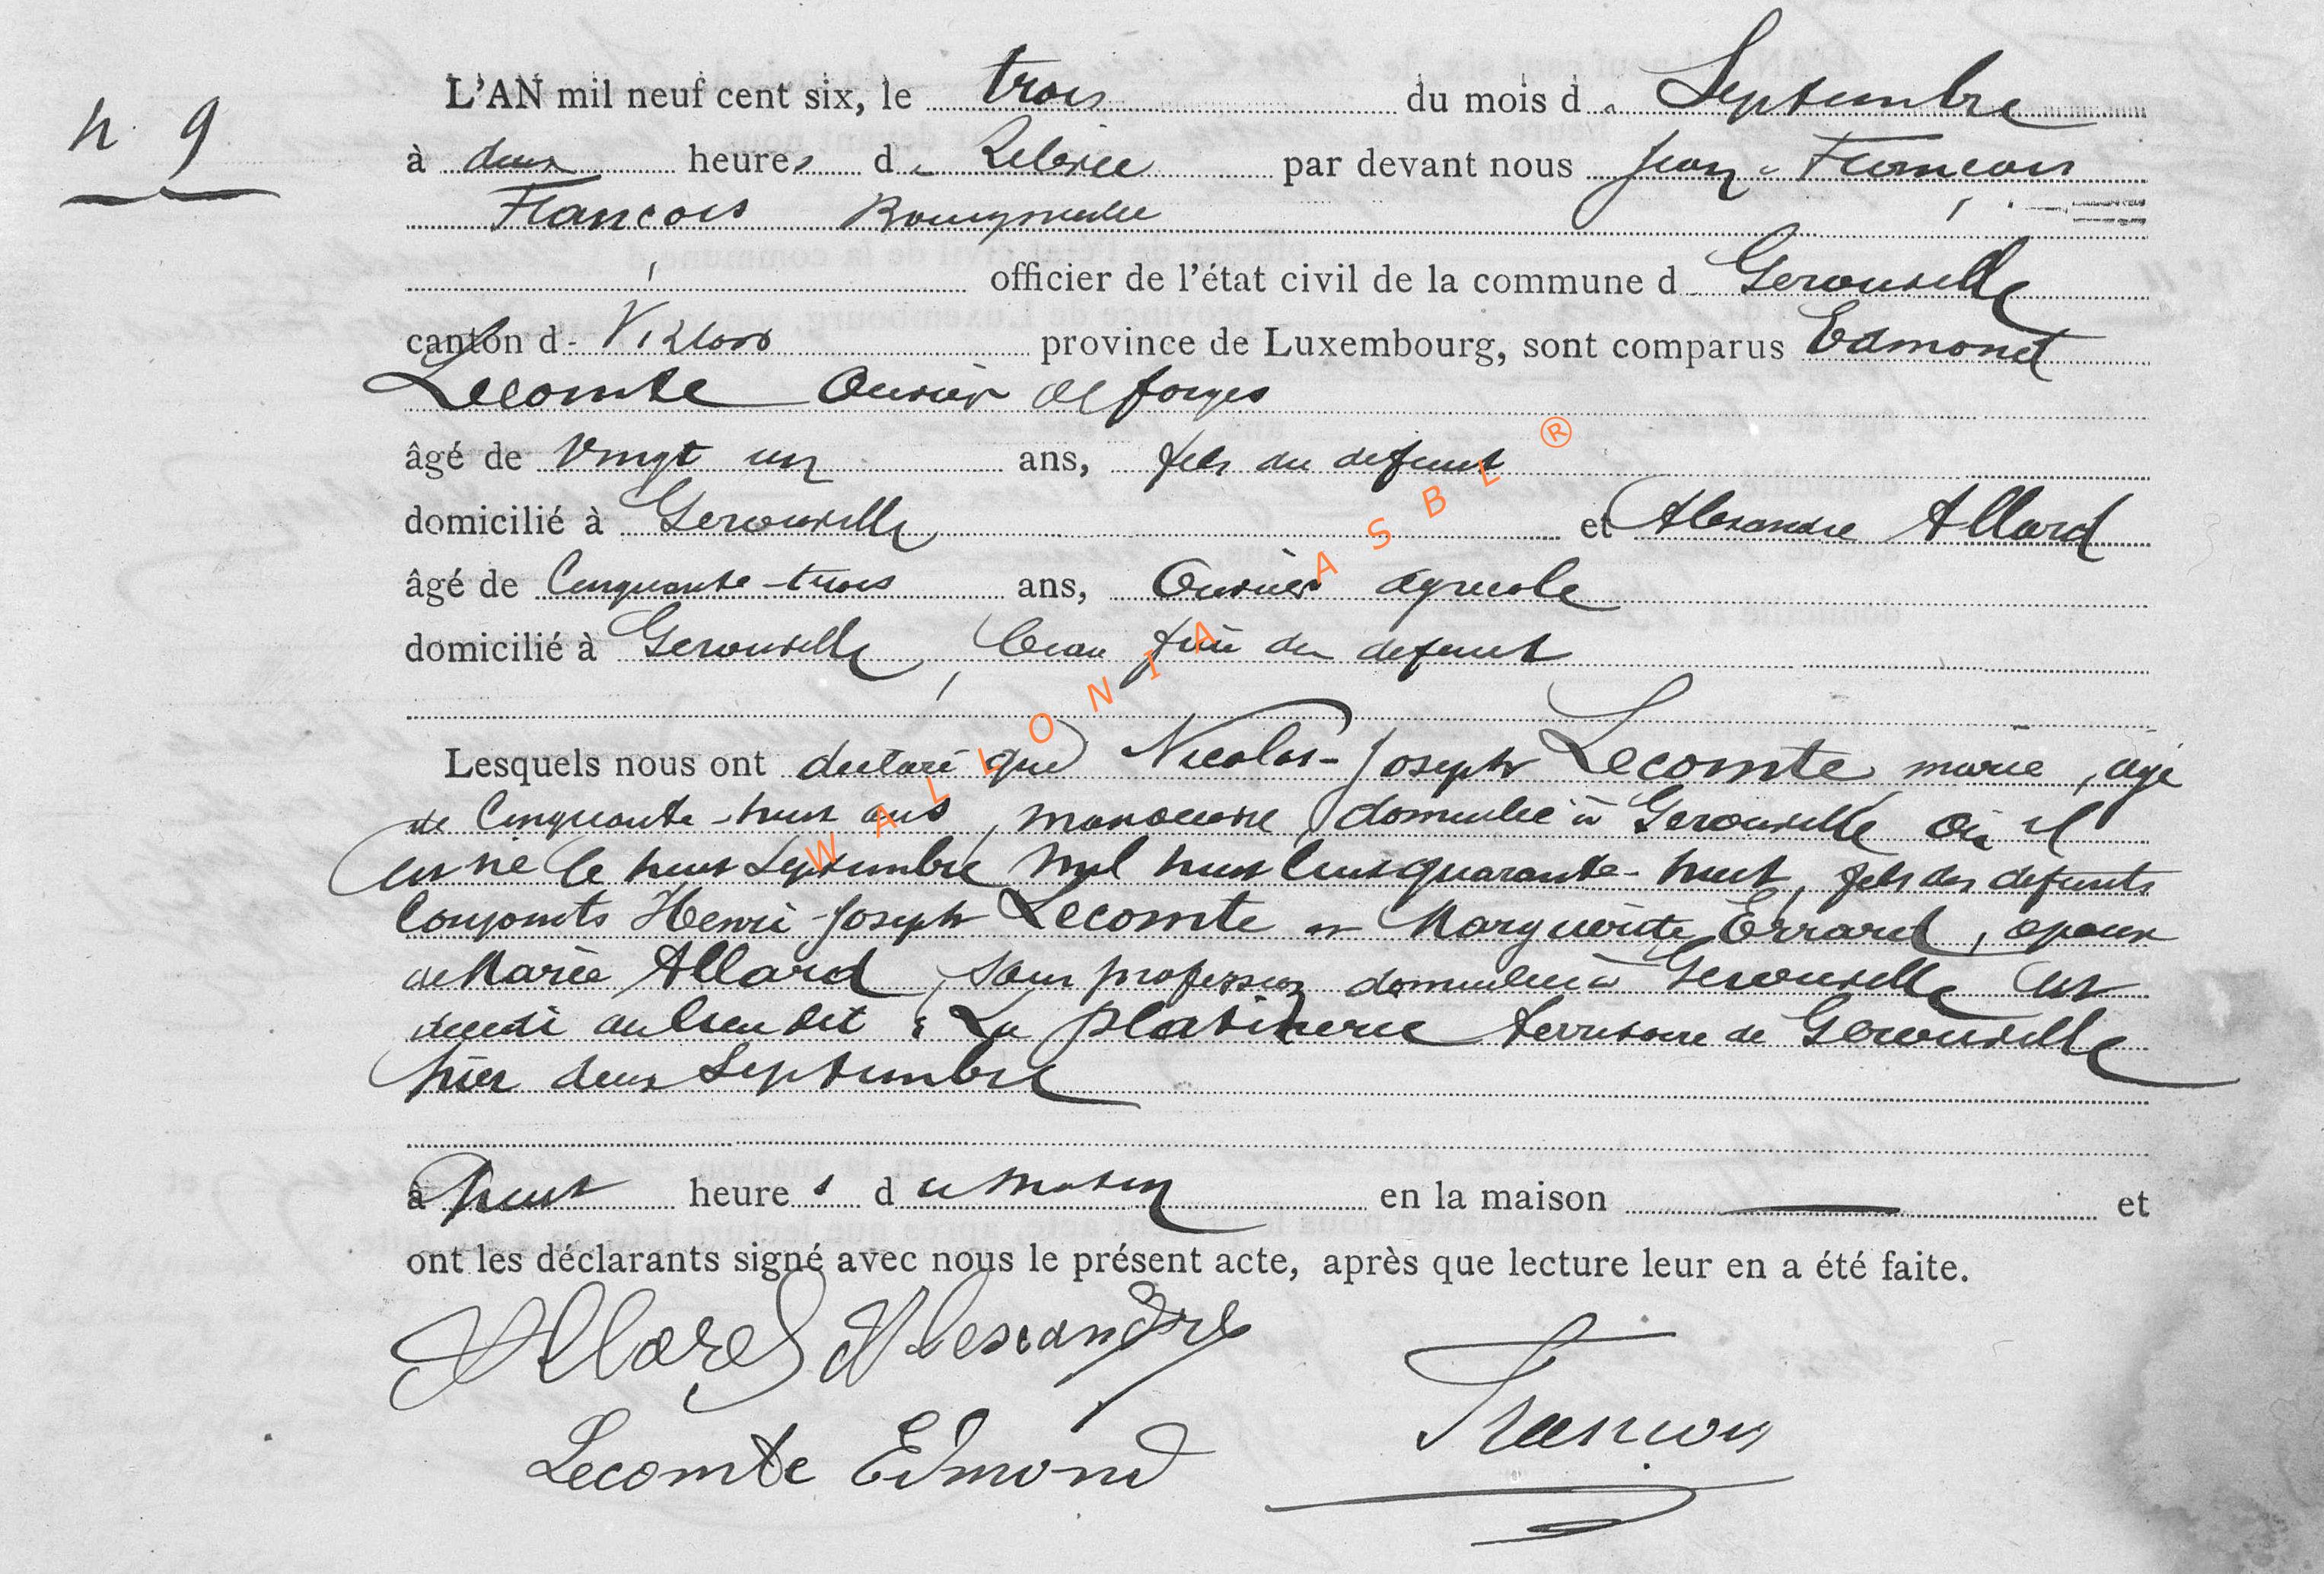 n. 9
L'AN mil neuf cent six, le trois du mois d e Septembre
à deux heures d e Relevée par devant nous Jean-François
François Bourgmestre
officier de l'état civil de la commune d Gerouville
canton d Virton province de Luxembourg, sont comparus Edmond
Lecomte Ouvrier de forges
âgé de vingt un ans, fils du défunt
domicilié à Gerouville et Alexandre Allard
âgé de Cinquante-trois ans, Ouvrier agricole
domicilié à Gerouville, beau frère du defunt
Lesquels nous ont declaré que Nicolas-Joseph Lecomte marié, agé
de Cinquante-huit ans, manoeuvre, domicilié à Gerouville où il
est né le huit Septembre Mil huit Cent quarante-huit, fils des défunts
Conjoints Henri-Joseph Lecomte et Marguérite Errard, époux
de Marie Allard, sans profession domiciliée à Gerouville est
décédé au lieu dit : La Platinerie territoire de Gerouville
hier deux Septembre
à huit heures du matin en la maison et
ont les déclarants signé avec nous le présent acte, après que lecture leur en a été faite.
Allard Alexandre
François
Lecomte Edmond
WALLONIA ASBL ®